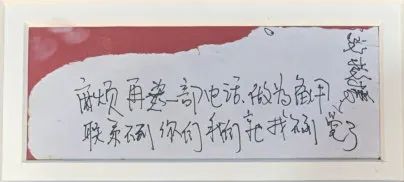 麻烦再装一部电话.做为备用
联系不到你们我们就找不到党了